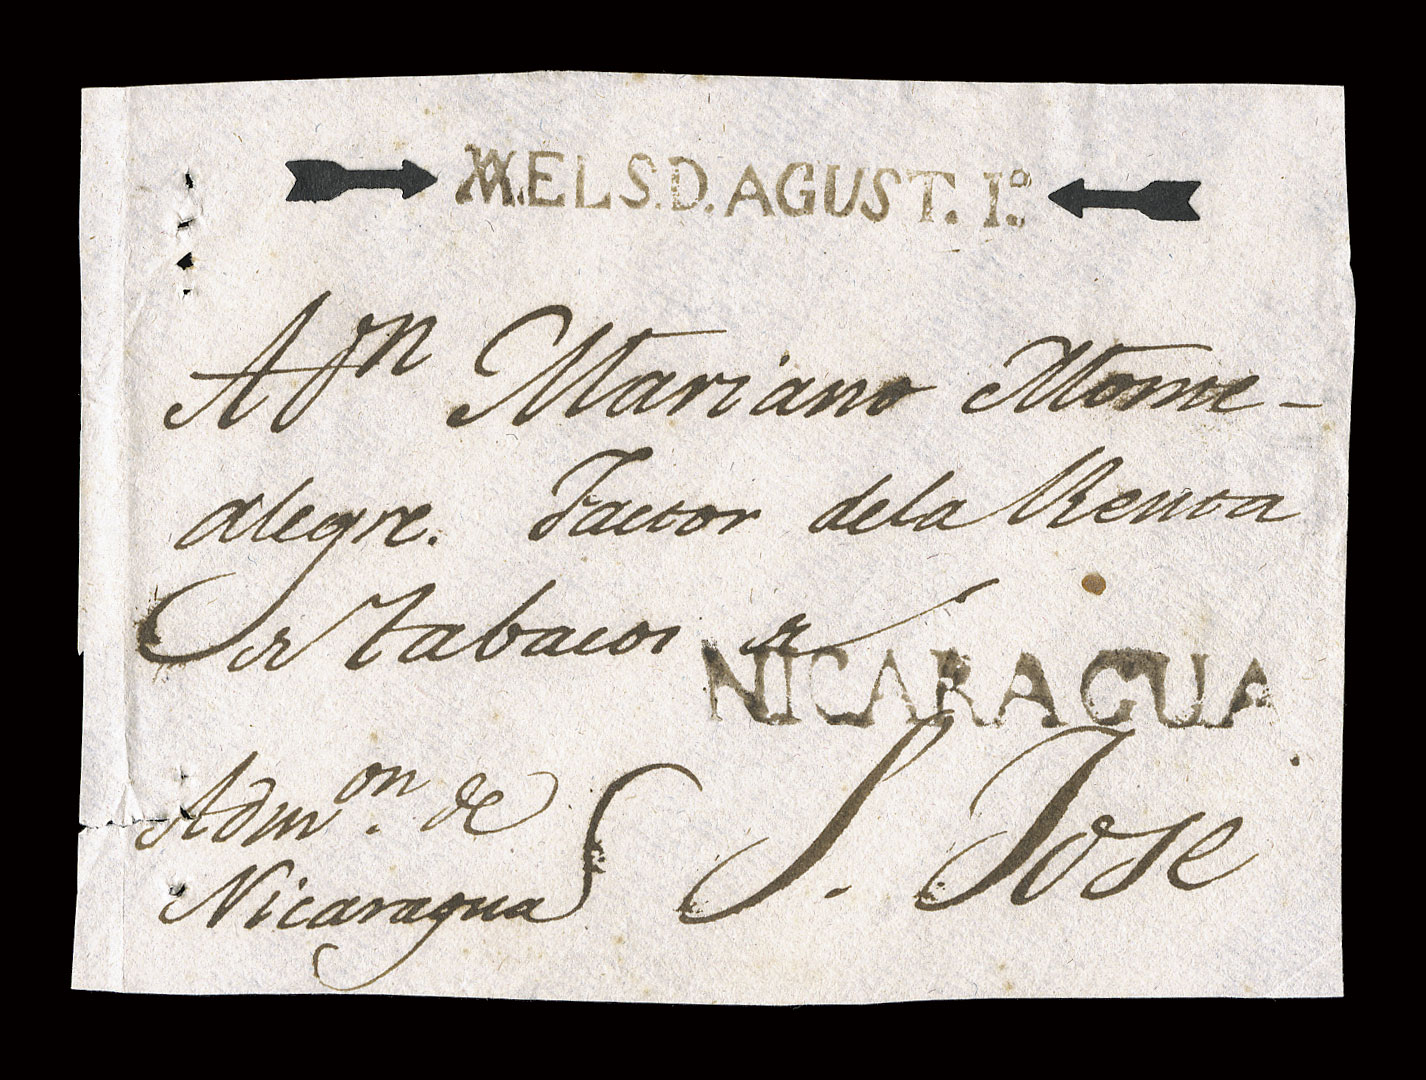 VA.EL S.D. AGUST. Iº.
A Dn Mariano Monte-
alegre. Factor de la Renta
de tabacos de
NICARAGUA
Admon. de
Nicaragua
S. Jose